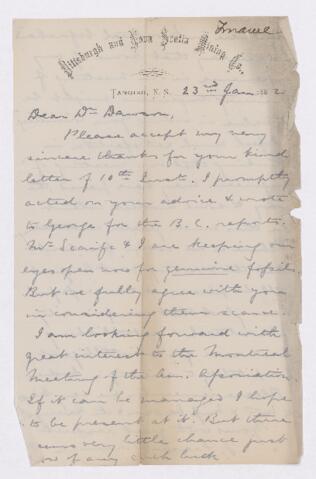 Pittsburgh and Nova Scotia Mining Co.,
Tangier, N.S. 23rd Jan. 1882
Dear Dr Dawson,
Please accept my very
sincere thanks for your kind
letter of 10th Inst. I promptly
acted on your advice & wrote
to George for the B.C. reports.
Mr & I are keeping our
eyes open now for genuine fossils.
But we fully agree with you
in considering them scarce.
I am looking forward with
great interest to the Montreal
Meeting of the Am. Association.
If it can be managed I hope
to be present at it. But there
seems very little chance just
now of any such luck